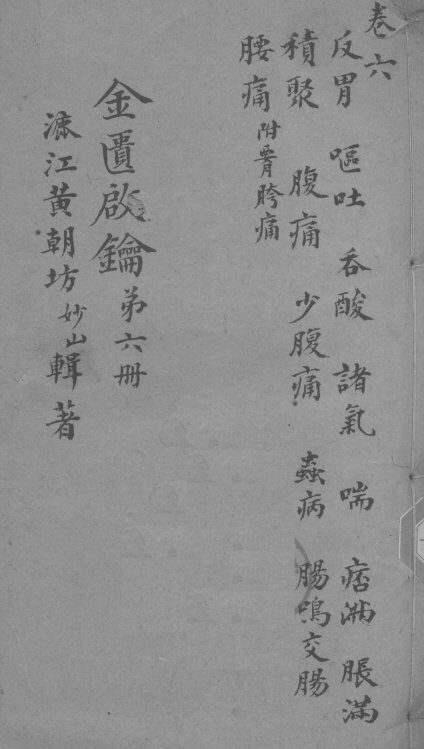 卷六
反胃 嘔吐 吞酸 諸氣 喘 痞滿 脹滿
積聚 腹痛 少腹痛 蟲病 腸鳴交腸
腰痛 附 胯痛
金匱啟鑰 第六冊
江黃朝坊妙山輯著